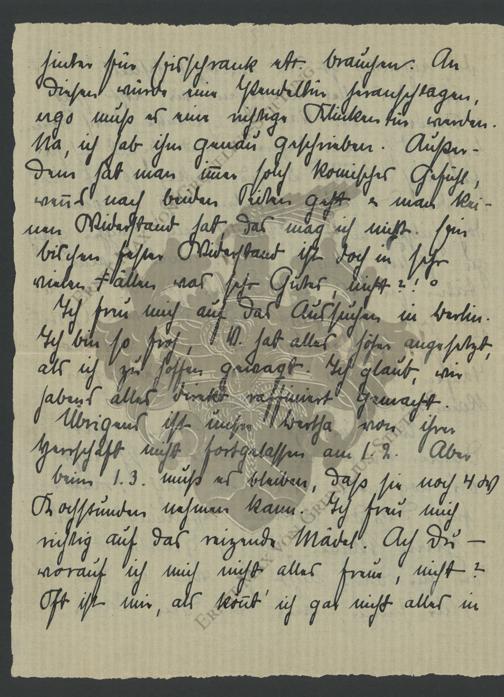 hinter für Eisschrank etc. brauchen. An
diesen würde eine Pendeltür heranschlagen,
ergo muß es eine richtige Klinkentür werden.
Na, ich hab ihm genau geschrieben. Außer-
dem hat man immer solch komisches Gefühl,
wenns nach beiden Seiten geht u. man kei-
nen Widerstand hat, das mag ich nicht. Ein
bischen fester Widerstand ist doch in sehr
vielen Fällen was sehr Gutes, nicht?!
Ich freu mich auf das Aussuchen in Berlin.
Ich bin so froh, W. hat alles höher angesetzt,
als ich zu hoffen gewagt. Ich glaub, wir
habens alles direkt raffiniert gemacht.
Übrigens ist unsre Bertha von ihrer
Herrschaft nicht fortgelassen am 1.2. Aber
beim 1.3. muß es bleiben, daß sie noch 4
Kochstunden nehmen kann. Ich freu mich
richtig auf das reizende Mädel. Ach Du —
worauf ich mich nicht alles freue, nicht?
Oft ist mir, als könnt' ich gar nicht alles in